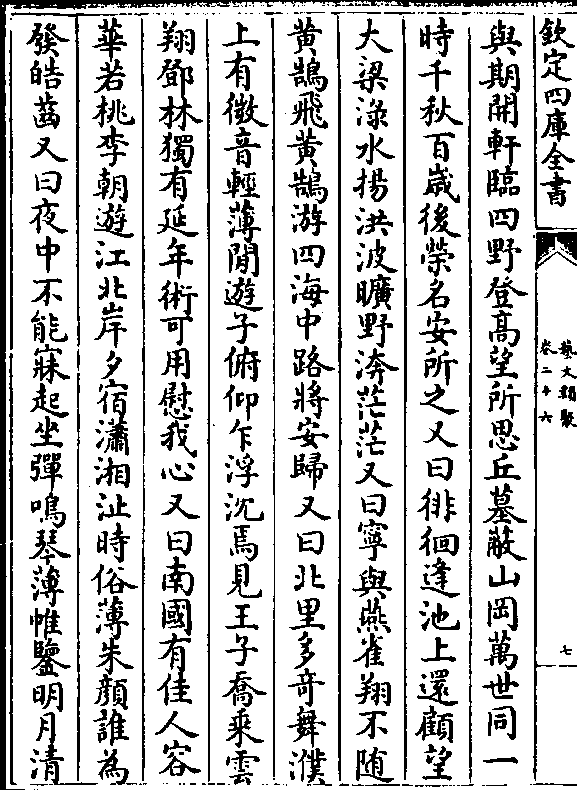 欽定四庫全書
藝文類聚
卷二十六
七
與期開軒臨四野登高望所思丘墓蔽山岡萬世同一
時千秋百歳後榮名安所之又曰徘徊逢池上還顧望
大梁渌水揚洪波曠野渀茫茫又曰寧與燕雀翔不随
黄鵠飛黄鵠游四海中路將安歸又曰北里多竒舞濮
上有微音輕薄閒遊子俯仰乍浮沉焉見王子喬乘雲
翔鄧林獨有延年術可用慰我心又曰南國有佳人容
華若桃李朝遊江北岸夕宿瀟湘沚時俗薄朱顔誰為
發皓齒又曰夜中不能寐起坐彈鳴琴薄帷鑒明月清